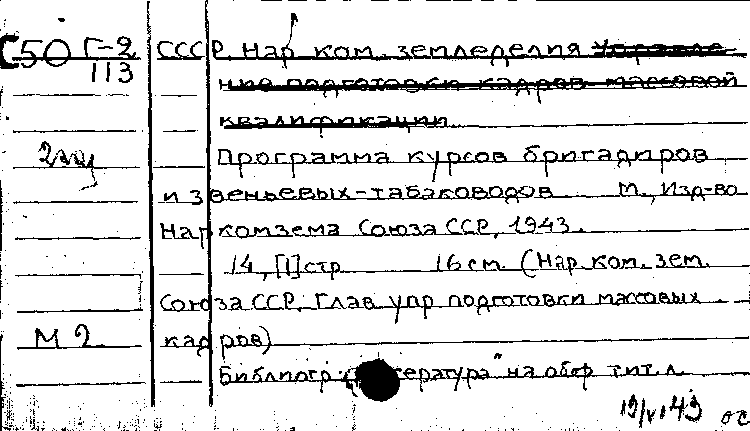 С50 Г-2/113 СССР. Нар. ком. земледелия Управле-
ние подготовки кадров массовой
квалификации.
2 экз Программа курсов бригадиров
и звеньевых-табаководов М., Изд-во
Наркомзема Союза ССР, 1943.
14, [1] стр 16 см. (Нар. ком. зем.
Союза ССР. Глав упр подготовки массовых
М 2 кадров)
Библиогр: "ература" на обор тит. л.
19/VI 43 ос